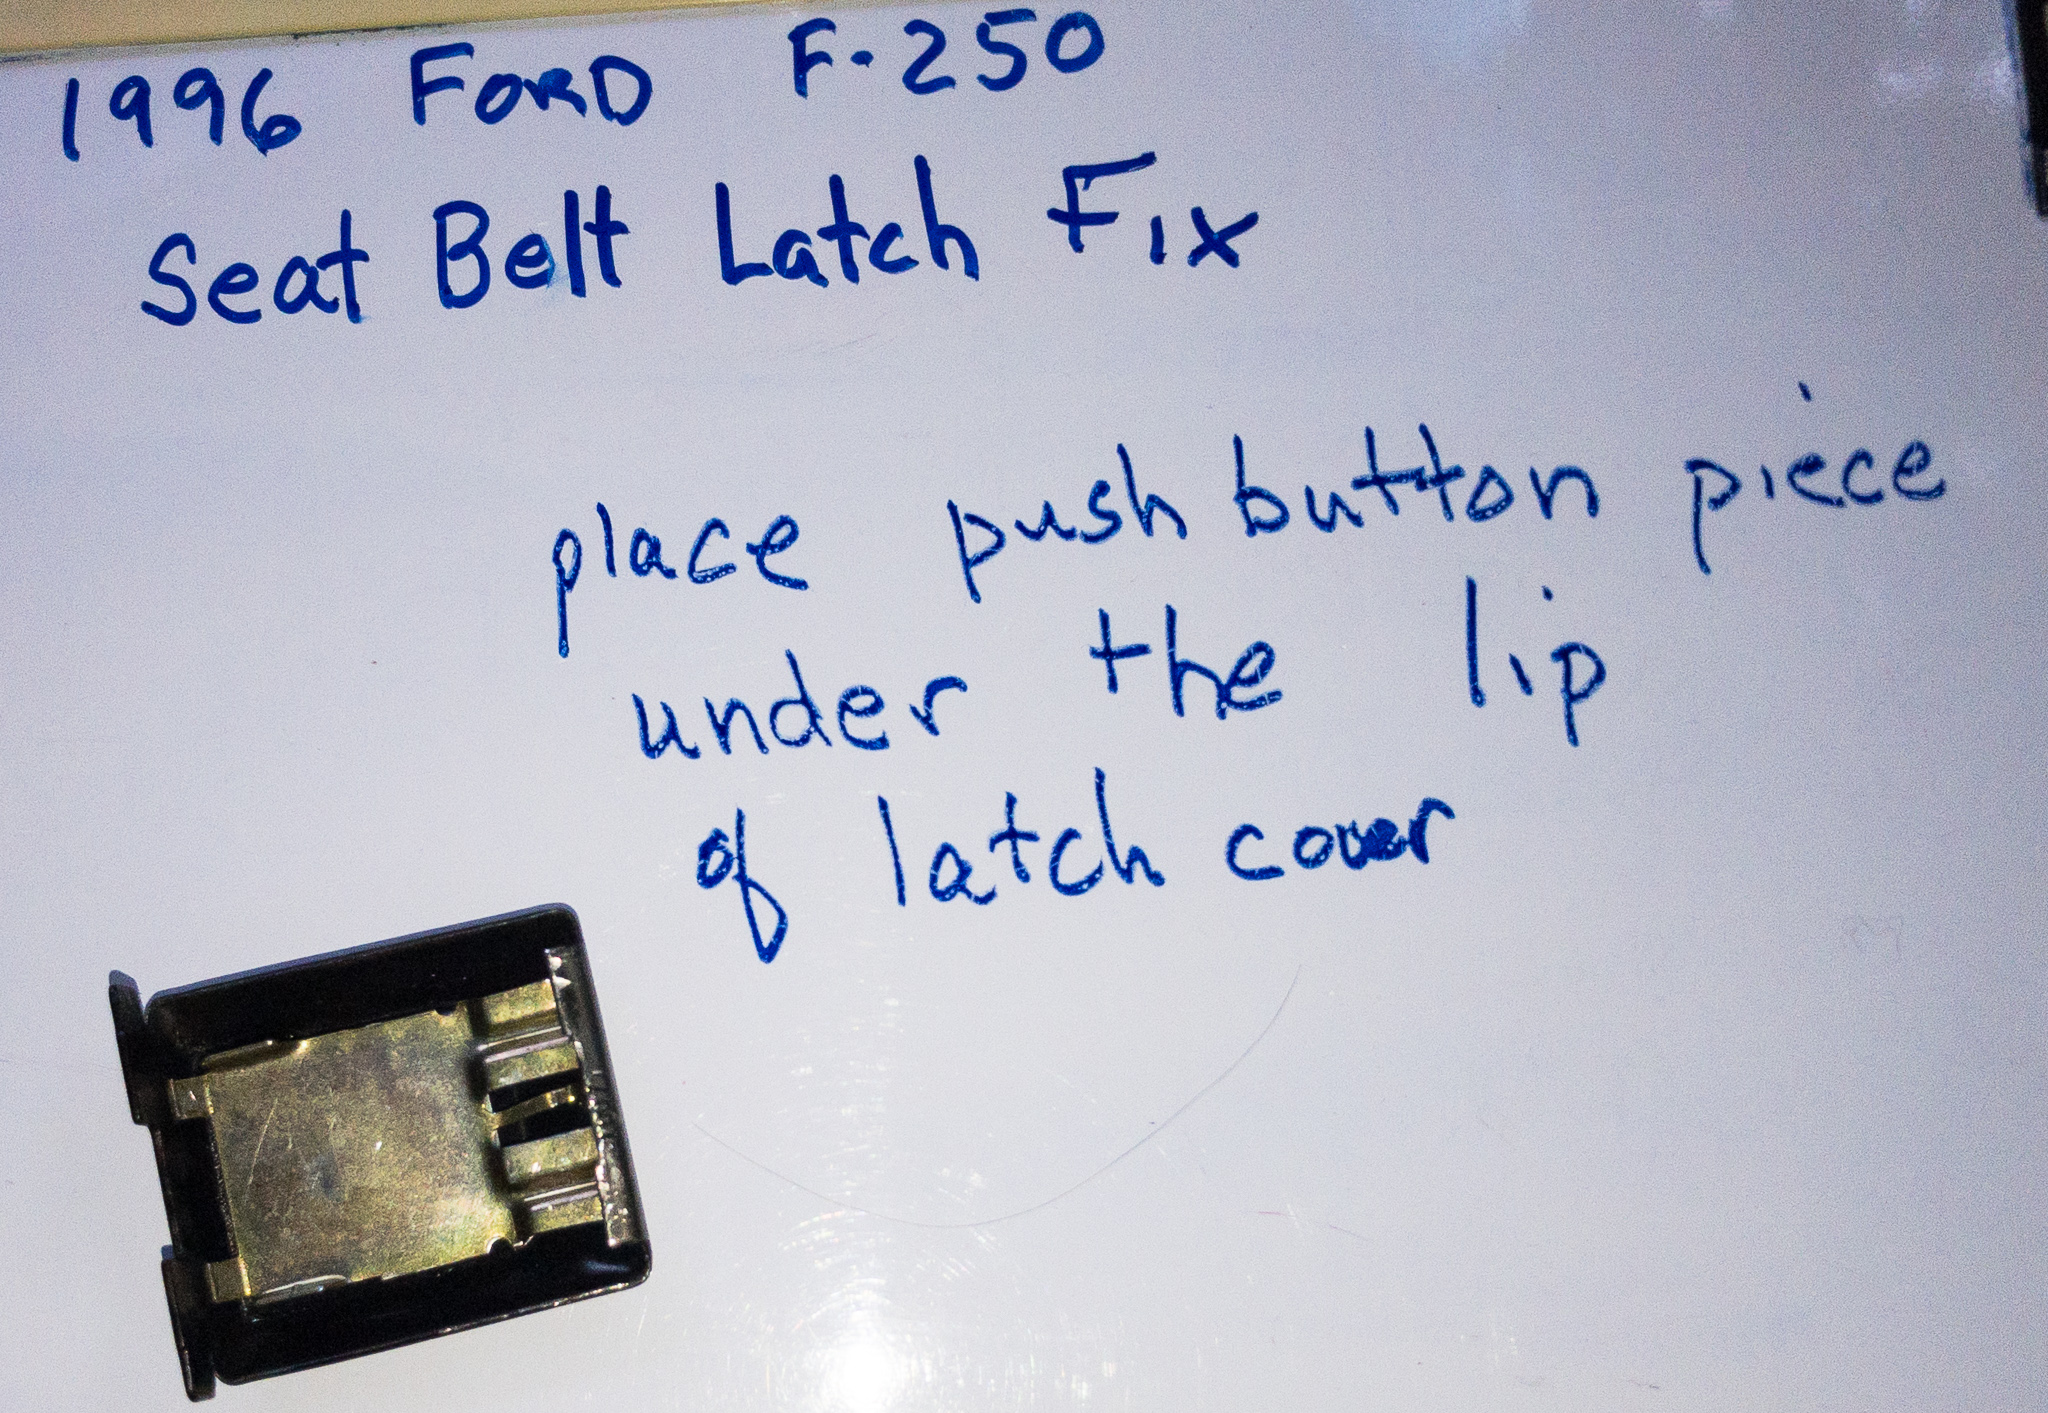 1996 FORD F-250
Seat Belt Latch Fix
place push button piece
under the lip
of latch cover